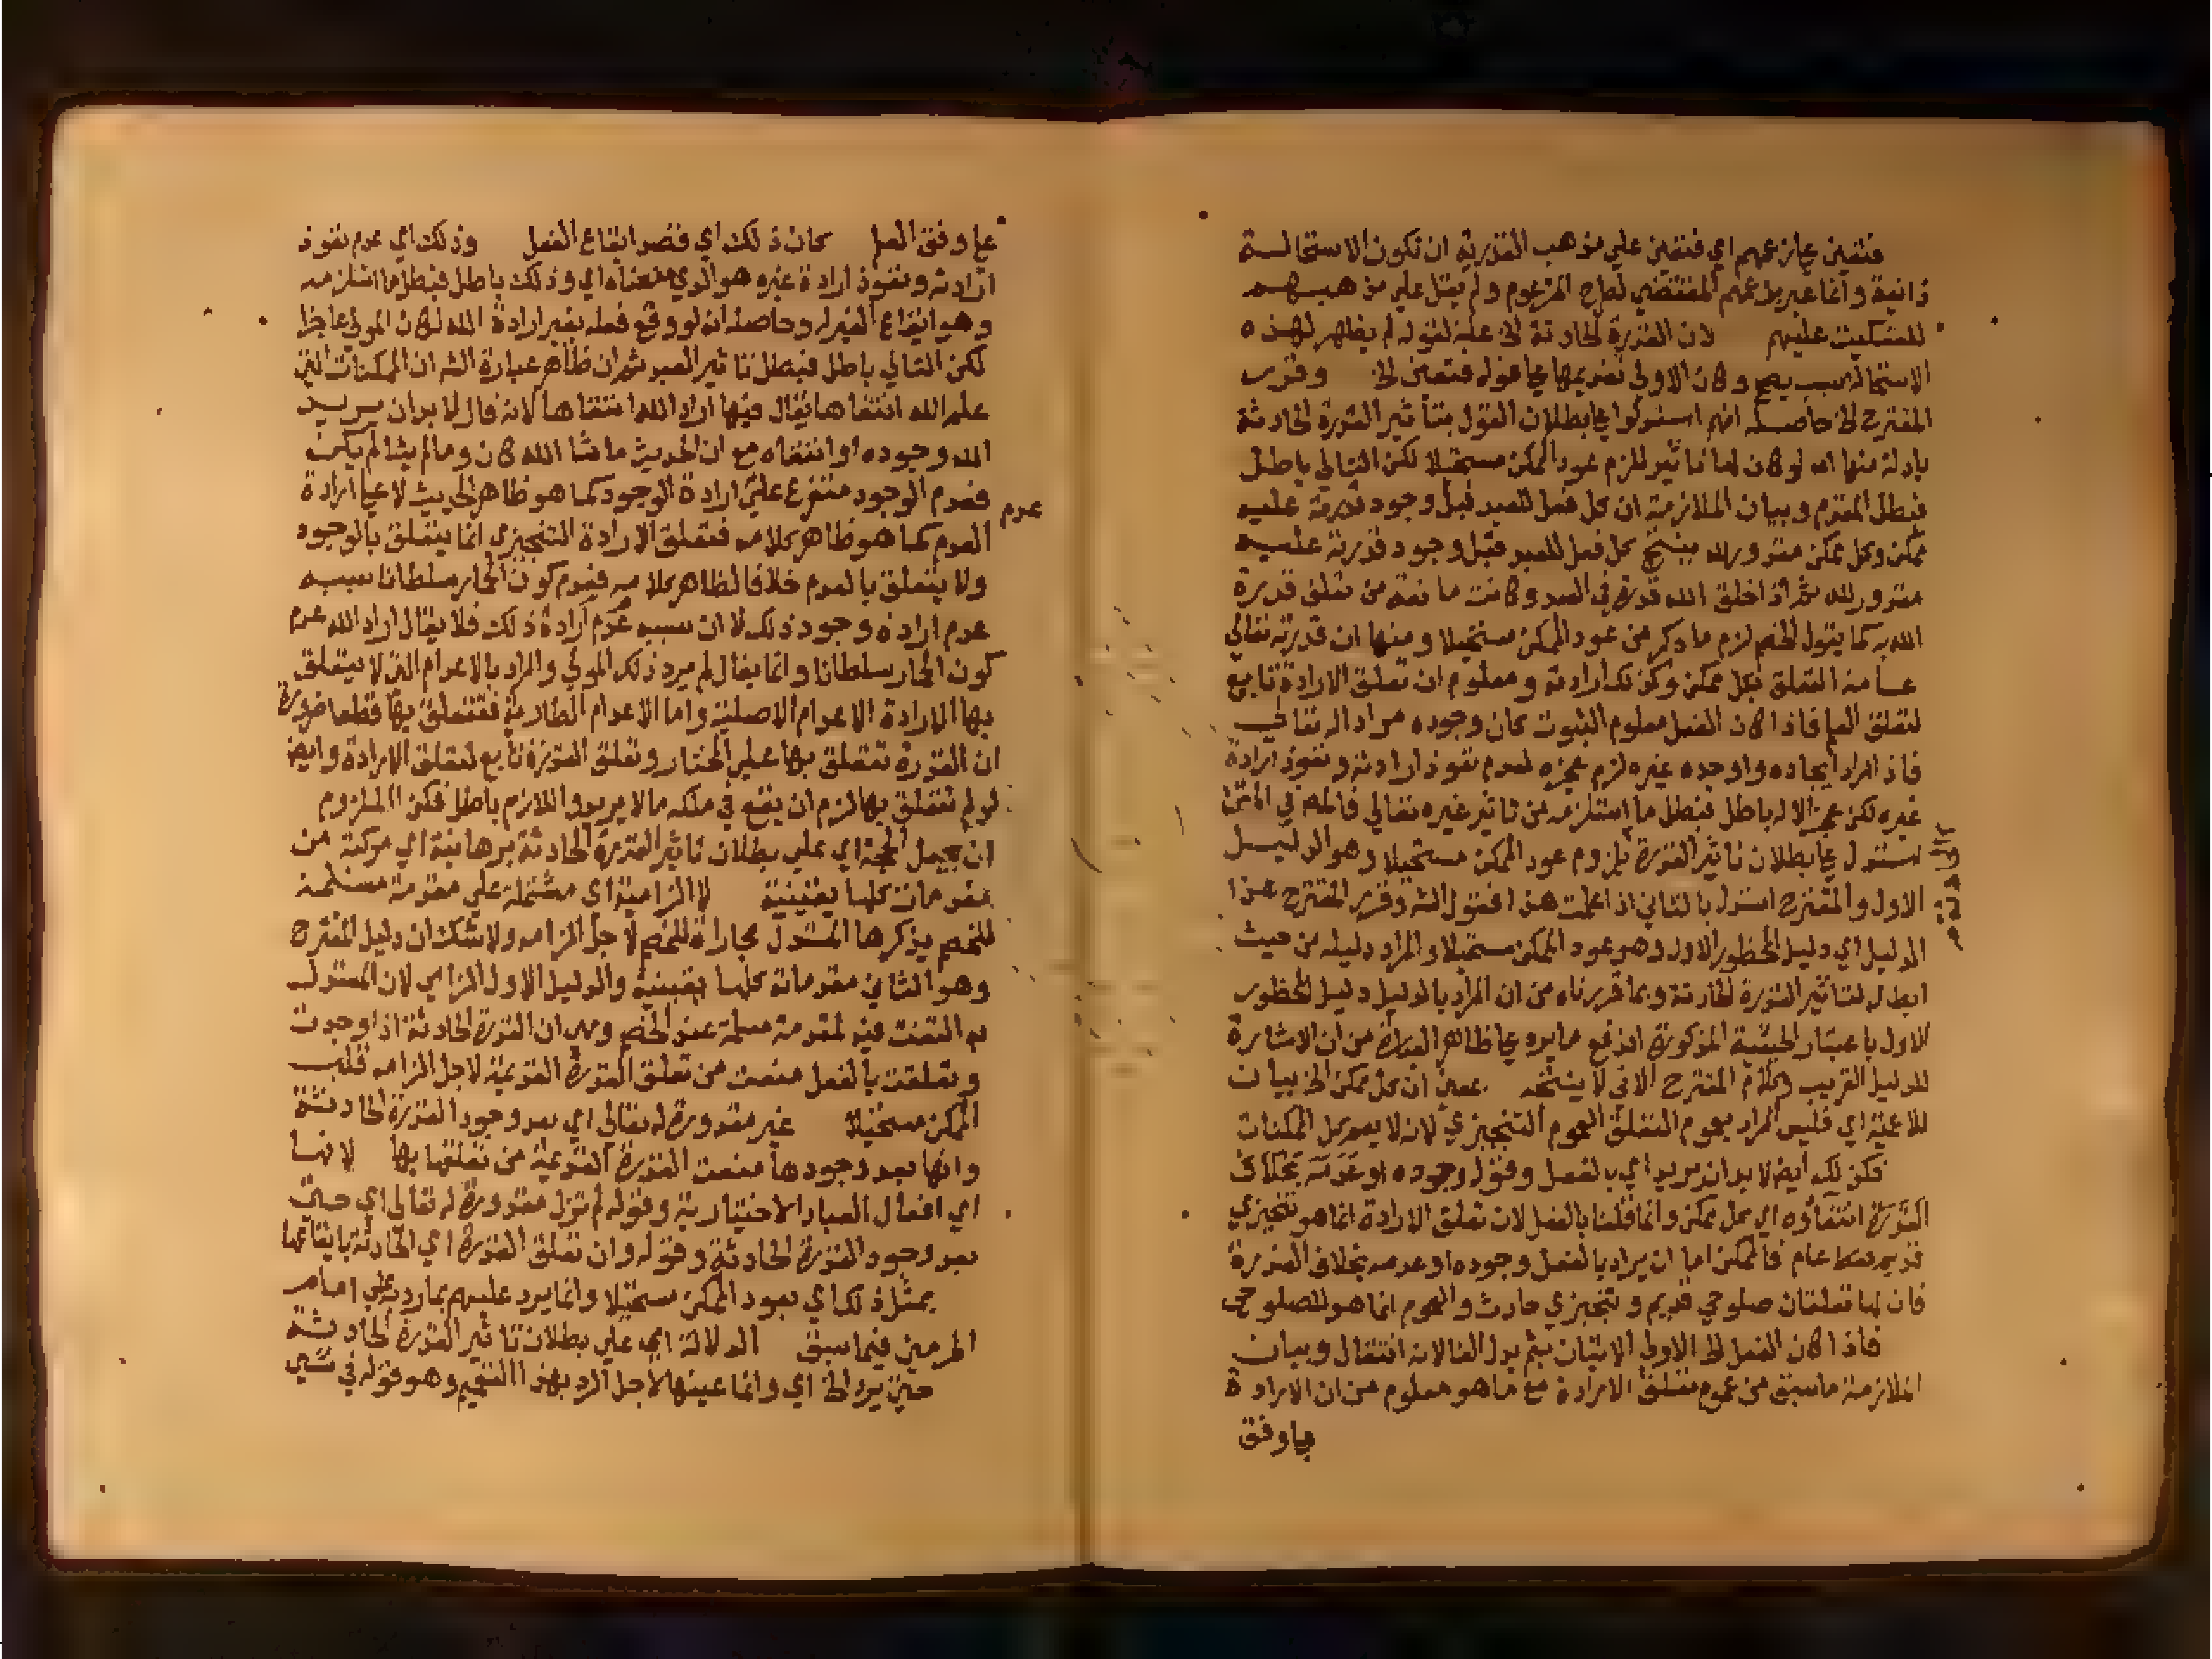 فتعين على زعمهم اي فتعين علي مذهب القدرية ان تكون الاستحالة
ذاتية وانما عبر بزعمهم المقتضي لطرح المزعوم ولم يقل علي مذهبهم
للتنكيت عليهم لان القدرة الحادثة الخ علة لقوله لم يظهر لهذه
الاستحالة سبب يصح وكان الاولي تقديمها على قوله فتعين الخ وقدر
المقترح الخ حاصله انهم استدلوا على بطلان القول بتأثير القدرة الحادثة
بادلة منها انه لو كان لها تاثير للزم عود الممكن مستحيلا لكن التالي باطل
فبطل المقدم وبيان الملازمة ان كل فعل للعبد قبل وجود قدرته عليه
ممكن وكل ممكن مقدور لله ينتج كل فعل للعبد قبل وجود قدرته عليه
مقدور لله ثم اذا خلق الله قدرة في العبد وكانت مانعة من تعلق قدرة
الله به كما يقول الخصم لزم ما ذكر من عود الممكن مستحيلا ومنها ان قدرته تعالي
عامة التعلق بكل ممكن وكذلك ارادته ومعلوم ان تعلق الارادة تابع
لتعلق العلم فاذا كان الفعل معلوم الثبوت كان وجوده مراد اله تعالي
فاذا اراد ايجاده واوجده غيره لزم عجزه لعدم نفوذ ارادته ونفوذ ارادة
غيره لكن عجز الاله باطل فبطل ما استلزمه من تاثير غيره تعالي فالمص في المتن
استدل على بطلان تاثير القدرة بلزوم عود الممكن مستحيلا وهو الدليل
الاول والمقترح استدل بالثاني اذا علمت هذا فقول الشه وقرر المقترح هذا
الدليل اي دليل المحظور الاول وهو عود الممكن مستحيلا والمراد دليله من حيث
ابطال لتاثير القدرة الحادثة وبما قررناه من ان المراد بالدليل دليل المحظور
الاول باعتبار الحيثية المذكورة اندفع ما يرد على ظاهر العبارة من ان الاشارة
للدليل القريب وكلام المقترح الاتي لا ينتجه بمعني ان كل ممكن الخ بيان
للاعمية اي فليس المراد بعموم التعلق العموم التنجيزي لانه لا يعم كل الممكنات
فكذلك ايضا لابد ان يريد اي بالفعل وقوله وجوده او عدمه بخلاف
القدرة انتفاؤه اي كل ممكن وانما قلنا بالفعل لان تعلق الارادة انما هو تنجيزي
قديم فقط عام فالممكن اما ان يراد بالفعل وجوده او عدمه بخلاف القدرة
فان لها تعلقان صلوحي قديم وتنجيزي حادث والعموم انما هو للصلوحي
فاذا كان الفعل الخ الاولي الاتيان بثم بدل الفا لانه انتقال وبيان
الملازمة ما سبق من عموم متعلق الارادة مع ما هو معلوم من ان الارادة
على وفق
على وفق العلم كان ذلك اي قصد ايقاع الفعل وذلك اي عدم نفوذ
ارادته ونفوذ ارادة غيره هو الذي معناه اي وذلك باطل فبطل ما استلزمه
وهو ايقاع الغير له وحاصله انه لو وقع فعله بغير ارادة الله لكان المولي عاجزا
لكن التالي باطل فبطل تاثير العبد ثم ان ظاهر عبارة الشه ان الممكنات التي
علم الله انتفاها يقال فيها اراد الله انتفاها لانه قال لابد ان يريد
الله وجوده او انتفاه مع ان الحديث ما شا الله كان وما لم يشا لم يكن
فعدم الوجود متفرع على ارادة الوجود كما هو ظاهر الحديث لا على ارادة
عدم
العدم كما هو ظاهر كلامه فتعلق الارادة التنجيزي انما يتعلق بالوجود
ولا يتعلق بالعدم خلافا لظاهر كلامه فعدم كون الحمار سلطانا سببه
عدم ارادة وجود ذلك لا ان سببه عدم ارادة ذلك فلا يقال اراد الله عدم
كون الحمار سلطانا وانما يقال لم يرد ذلك المولي والمراد بالاعدام التي لا يتعلق
بها الارادة الاعدام الاصلية واما الاعدام الطارية فتتعلق بها قطعا ضرورة
ان القدرة تتعلق بها على المختار وتعلق القدرة تابع لتعلق الارادة وايضا
لو لم تتعلق بها لزم ان يقع في ملكه ما لا يريد واللازم باطل فكذا الملزوم
ان يجعل الحجة اي علي بطلان تاثير القدرة الحادثة برهانية اي مركبة من
مقدمات كلها يقينية لا الزامية اي مشتملة علي مقدمة مسلمة
للخصم يذكرها المستدل مجاراة للخصم لاجل الزامه ولا شك ان دليل المقترح
وهو الثاني مقدماته كلها يقينية والدليل الاول الزامي لان المستدل
به التفت فيه لمقدمة مسلمة عند الخصم وهي ان القدرة الحادثة اذا وجدت
وتعلقت بالفعل منعت من تعلق القدرة القديمة لاجل الزامه قلب
الممكن مستحيلا غير مقدورة له تعالي اي بعد وجود القدرة الحادثة
وانها بعد وجودها منعت القدرة القديمة من تعلقها بها لانها
اي افعال العباد الاختيارية وقوله لم تزل مقدورة له تعالي اي حتى
بعد وجود القدرة الحادثة وقوله وان تعلق القدرة اي الحادثة بايقاعها
بمثل ذلك اي بعود الممكن مستحيلا وانما يرد عليهم بما رد به علي امام
الحرمين فيما سبق الدلالة اي علي بطلان تاثير القدرة الحادثة
حتى يرد الخ اي وانما عينها لاجل الرد بهذا التعميم وهو قوله في شي